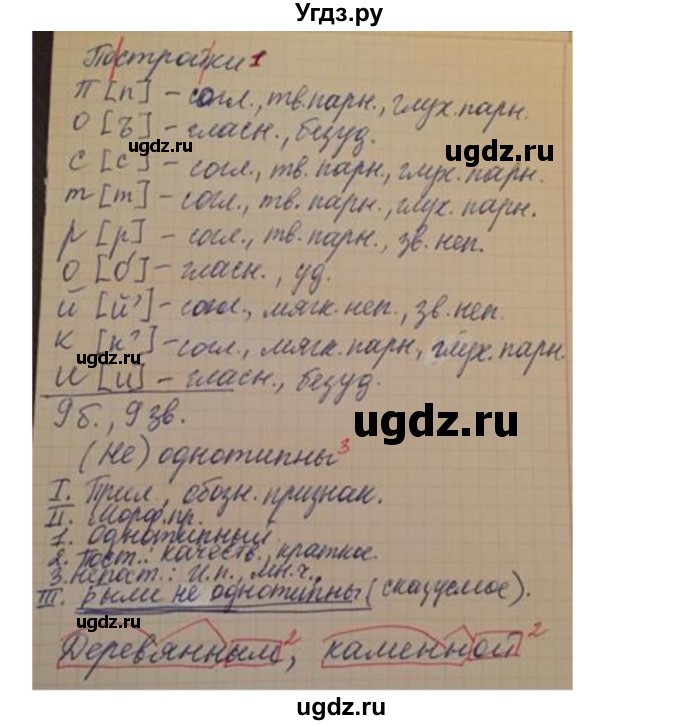 Угдз.ру
Постройки 1
П [п] – согл., тв. парн., глух. парн.
О [ъ] – гласн., безуд.
С [с] – согл., тв. парн., глух. парн.
т [т] – согл., тв. парн., глух. парн.
р [р] – согл., тв. парн., зв. неп.
О [о́] – гласн., уд.
й [й'] – согл., мягк. неп., зв. неп.
К [к'] – согл., мягк. парн., глух. парн.
И [и] – гласн., безуд.
9 б., 9 зв.
(Не) однотипны 3
I. Прил., обозн. признак.
II. Морф. пр.
1. Однотипный
2. Пост.: качеств., краткое.
3. непост.: И.п., мн.ч.
III. Были не однотипны (сказуемое).
Деревянными 2, каменной 2
ugdz.ru
ugdz.ru
ugdz.ru
ugdz.ru
ugdz.ru
ugdz.ru
Угдз.ру